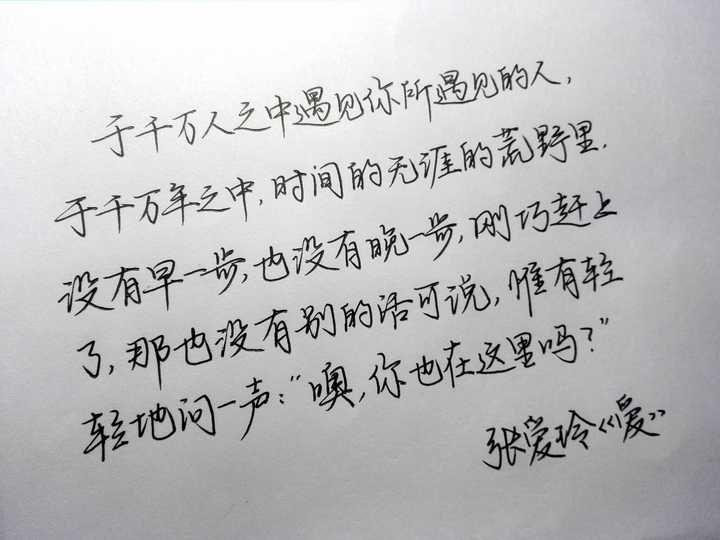 于千万人之中遇见你所遇见的人，
于千万年之中，时间的无涯的荒野里，
没有早一步，也没有晚一步，刚巧赶上
了，那也没有别的话可说，惟有轻
轻地问一声：“噢，你也在这里吗？”
张爱玲《爱》